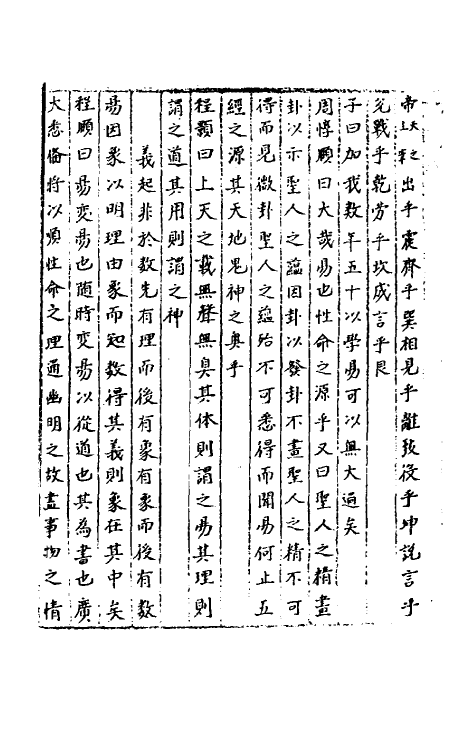 帝天之主宰出乎震齊乎巽相見乎離致役乎坤說言乎
兌戰乎乾勞乎坎成言乎艮
子曰加我數年五十以學易可以無大過矣
周惇頤曰大哉易也性命之源乎又曰聖人之精畫
卦以示聖人之蘊因卦以發卦不畫聖人之精不可
得而見微卦聖人之蘊殆不可悉得而聞易何止五
經之源其天地鬼神之奥乎
程顥曰上天之載無聲無臭其体則謂之易其理則
謂之道其用則謂之神
義起非於數先有理而後有象有象而後有數
易因象以明理由象而知數得其義則象在其中矣
程頤曰易変易也随時变易以從道也其為書也廣
大悉俻将以順性命之理通幽明之故盡事物之情